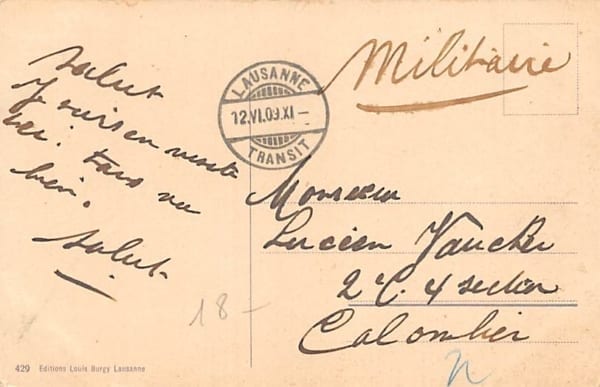 Salut
J'suis en
ici. Tous va
bien.
Salut
LAUSANNE
12.VI.09.XI-
TRANSIT
Militaire
Monsieur
Lucien Vaucher
2 C. 4 section
Colombier
18-
429 Editions Louis Burgy Lausanne